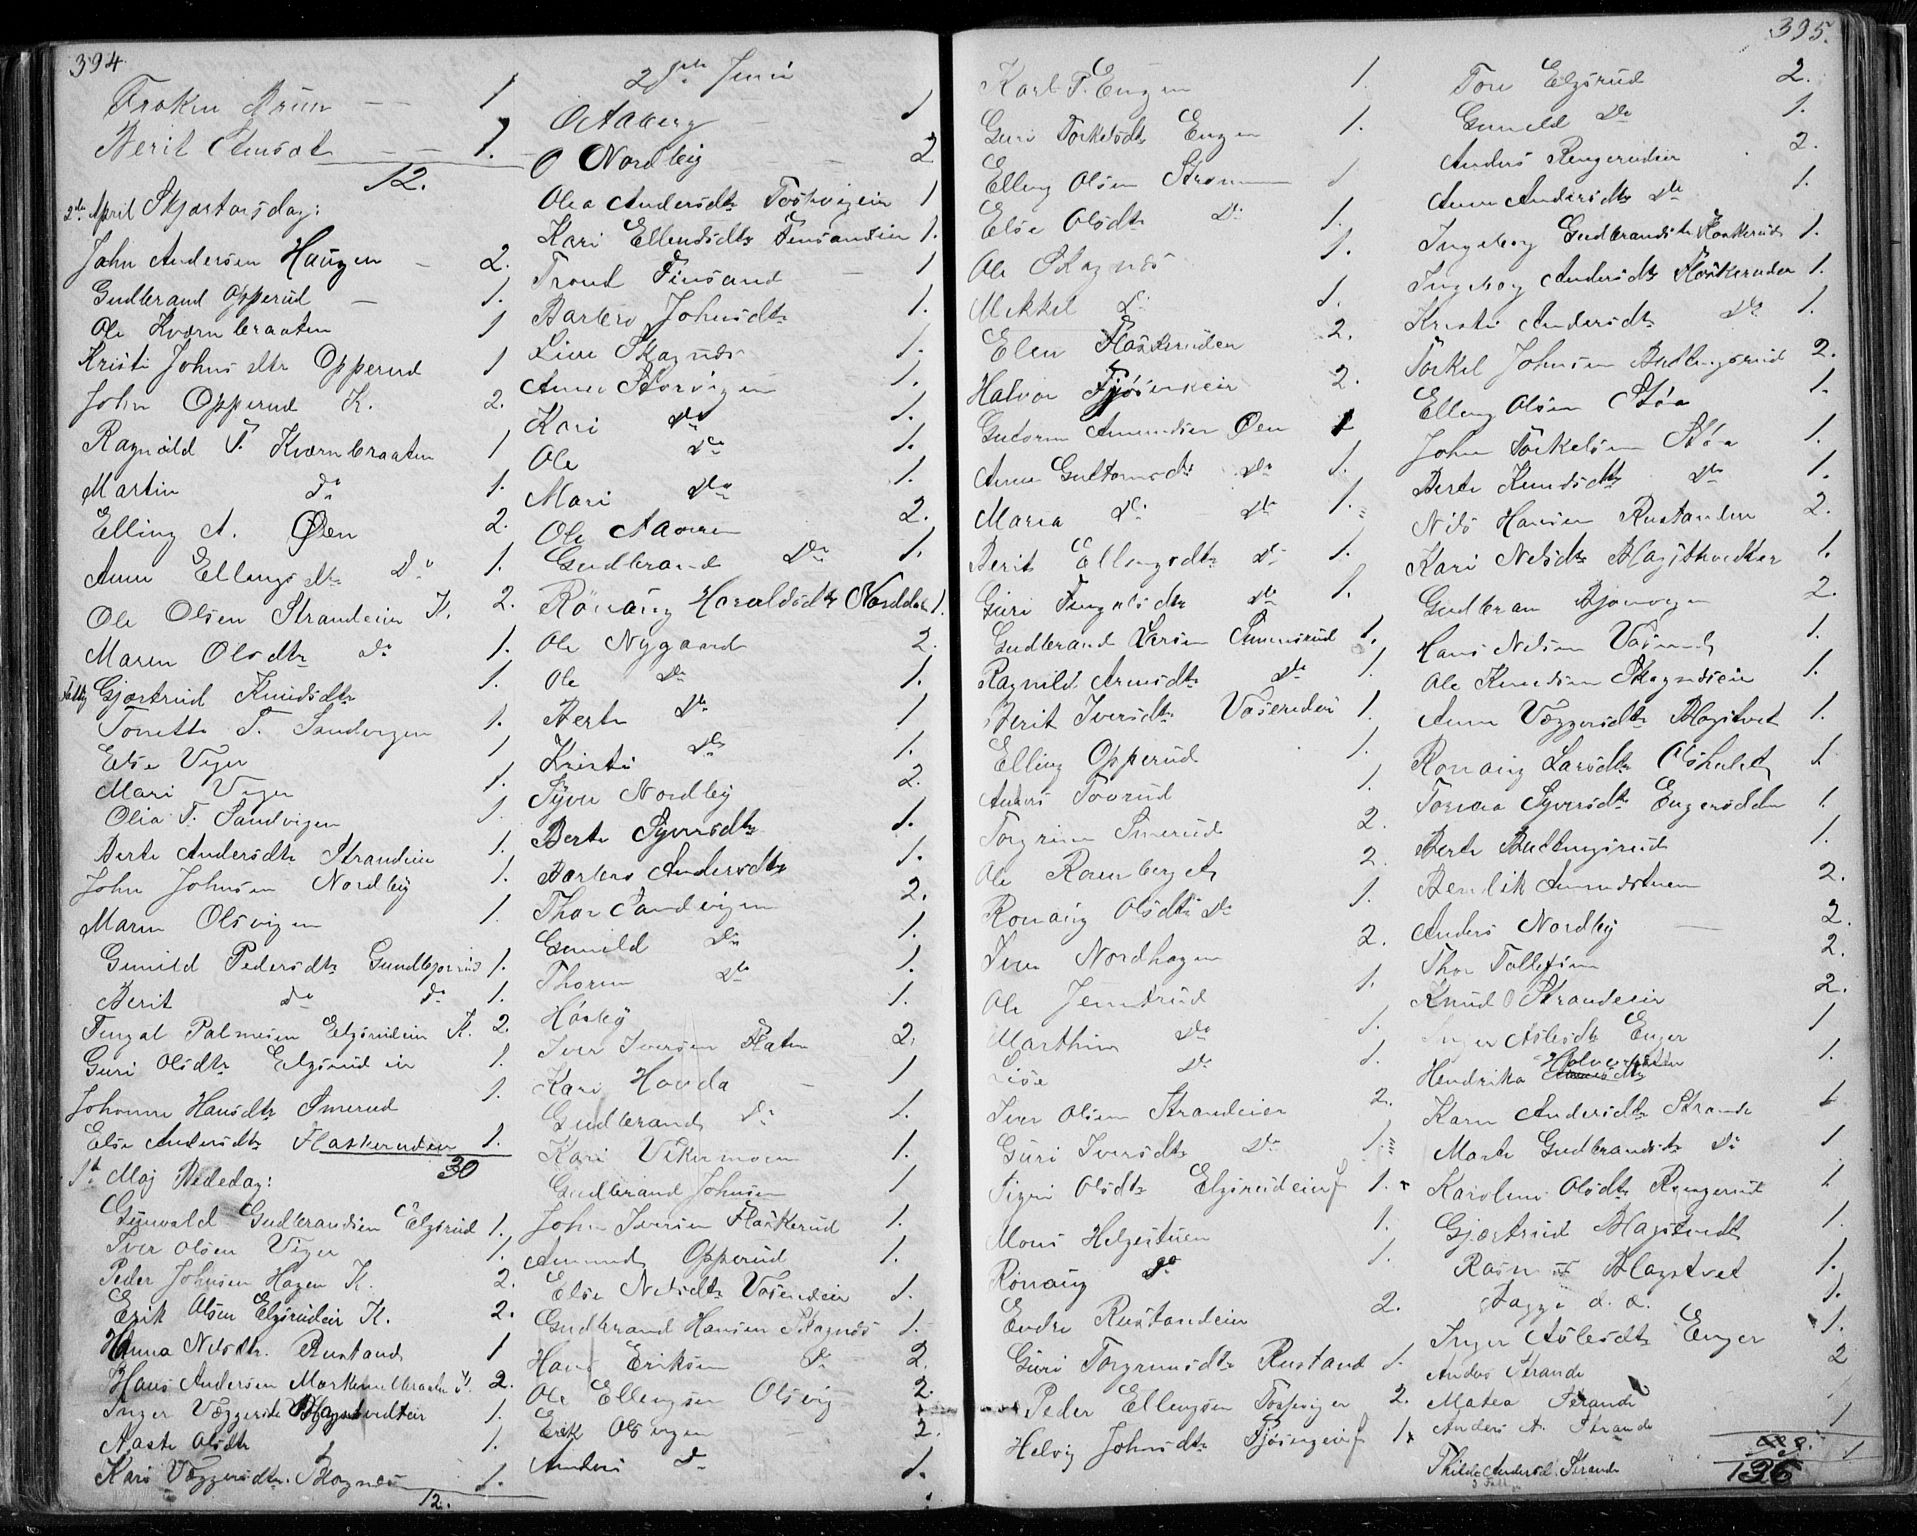 394
Frøken Bruun — — 1
Berit Amsat — — 1.
12.
2de April Skjærtorsdag:
John Andersen Haugen — 2.
Gudbrand Opperud — 1.
Ole Kværnbraaten 1
Kristi Johnsdtr Opperud 1
John Opperud K. 2.
Ragnild T. Kværnbraaten 1
Martin Do 1.
Elling A. Øen 2.
Anne Ellingsdtr Do 1.
Ole Olsen Strandeien K. 2.
Maren Olsdtr Do 1.
Gjærtrud Knudsdtr 1.
Tonette T. Sandvigen 1.
Else Viger 1
Mari Viger 1.
Olia T. Sandvigen 1
Berte Andersdtr Strandeien 1.
John Johnsen Nordby 1.
Maren Olsvigen 1.
Gunild Pedersdtr Gundbjørrud 1.
Berit do do 1.
Fingal Palmesen Elgsrudeien K. 2.
Guri Olsdtr Elgsrudeien 1.
Johanne Hansdtr Smerud 1.
Else Andersdtr Flaskerudeien 1.
30
1st Maj Bededag:
Gunvald Gudbrandsen Elgsrud 1.
Iver Olsen Viger 1.
Peder Johnsen Hagen K. 2.
Erik Olsen Elgsrudeien K. 2.
Anna Nilsdtr. Rustand 1
Hans Andersen K. 2.
Inger Væggersdtr Hagstvedteien 1.
Aaste Olsdtr 1.
Kari Væggersdtr. Skagnæs 1.
12.
28de Juni
O Aaberg — 1
O Nordby — — 2
Olea Andersdtr Toshvigeien 1
Kari Ellendsdtr Finsandeien 1.
Trond Finsand — 1
Barbro Johnsdtr 1.
Live Skagnæs 1.
Anne Storvigen 1.
Kari Do 1.
Ole Do 1.
Mari Do 1.
Ole Aavren 2.
Gudbrand Do 1.
Rønaug Haraldsdtr Norddal 1.
Ole Nygaard 2.
Ole Do 1.
Berte Do 1
Kristi Do 1.
Syver Nordby 2.
Berte Syversdtr 1.
Barbro Andersdtr 1.
Thor Sandvigen 2.
Gunild Do 1.
Thorine Do 1.
Høiby 1.
Iver Iversen Flaten 2.
Kari Hovda — 1
Gudbrand Do 1.
Kari Vikermoen 1.
Gudbrand Johnsen 1
John Iversen Flaskerud 1.
Amund Opperud 1.
Else Nilsdtr Vasendeien 1.
Gudbrand Hansen Skagnæs 1.
Hans Eriksen Do 2.
Ole Ellingsen Olsvig 2.
Erik Olsvigen 2.
Anders Do 1.
395.
Karl P. Engen 1.
Guri Torkelsdtr Engen 1.
Elling Olsen Strømmen 1
Else Olsdtr Do 1.
Ole Skagnæs 1.
Mikkel Do 1.
Elen Flaskeruden 2.
Halvor Fjøseneien 2.
Gutorm Amundsen Øen 1
Anne Guttormsdtr Do 1.
Maria Do Do 1.
Berit Ellingsdtr Do 1.
Guri Fingalsdtr Do 1.
Gudbrand Larsen Simensrud 1.
Ragnild Arnesdtr Do 1
Berit Iversdtr Vasendeien 1.
Elling Opperud 1.
Anders Tovrud 1
Torgrim Smerud 2.
Ole Ramberget 2.
Rønaug Olsdtr Do 1.
Iver Nordhagen 2.
Ole Jemtrud 1.
Marthin Do 1.
Lise Do 1.
Iver Olsen Strandeien 2.
Guri Iversdtr Do 1.
Sigri Olsdtr Elgsrudeien 1.
Mons Helgestuen 1.
Rønaug Do 1.
Endre Rustandeien 2.
Guri Torgrimsdtr Rustand 1.
Peder Ellingsen Toshviger 2.
Helvig Johnsdtr Fjøsengeien 1
Tore Elgsrud 2.
Gunild Do 1.
Anders Rengerudeien 2.
Anne Andersdtr Do 1.
Ingeborg Gudbrandsdtr Flaskerud 1.
Ingeborg Andersdtr Flaskeruden 1.
Kristi Andersdtr Do 1.
Torkel Johnsen Buttingsrud 2.
Elling Olsen Støa 1.
John Torkelsen Støa 1.
Berte Knudsdtr Do 1.
Nils Hansen Rustanden 2.
Kari Nilsdtr Hagstvedten 1.
Gudbran Bjønvigen 2.
Hans Nilsen Vasend 1.
Ole Knudsen Skagnæseien 1.
Anne Væggersdtr Hagstvet 1.
Rønaug Larsdtr Olshulet 1
Tonea Syversdtr Engersdalen 1.
Berte Buttingsrud 1.
Bendik Amundstuen 2.
Anders Nordby — 2.
Thor Tollefsen 2.
Knud O Strandeien 2.
Inger Aslesdtr Enger 1
Hendrika Halvorsdtr 1.
Karen Andersdtr Strande 1
Marte Gudbrandsdtr Do 1
Karoline Olsdtr Rengerud 1
Gjærtrud Hagstvedt 1.
Hagstvet 1.
1.
Inger Aslesdtr Enger 1.
Anders Strande 2
Matea Strande
Anders A. Strande 1
Thilde Andersd. Strande 1
136